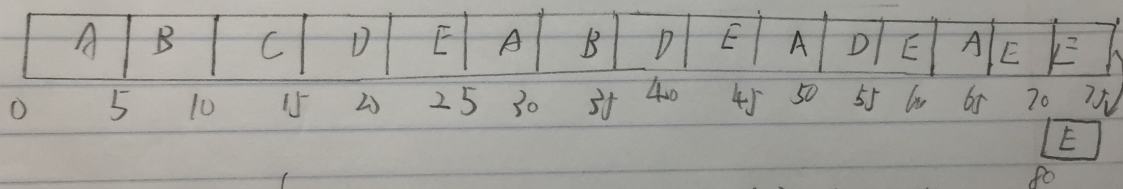 A B C D E A B D E A D E A E E
0 5 10 15 20 25 30 35 40 45 50 55 60 65 70 75
E
80